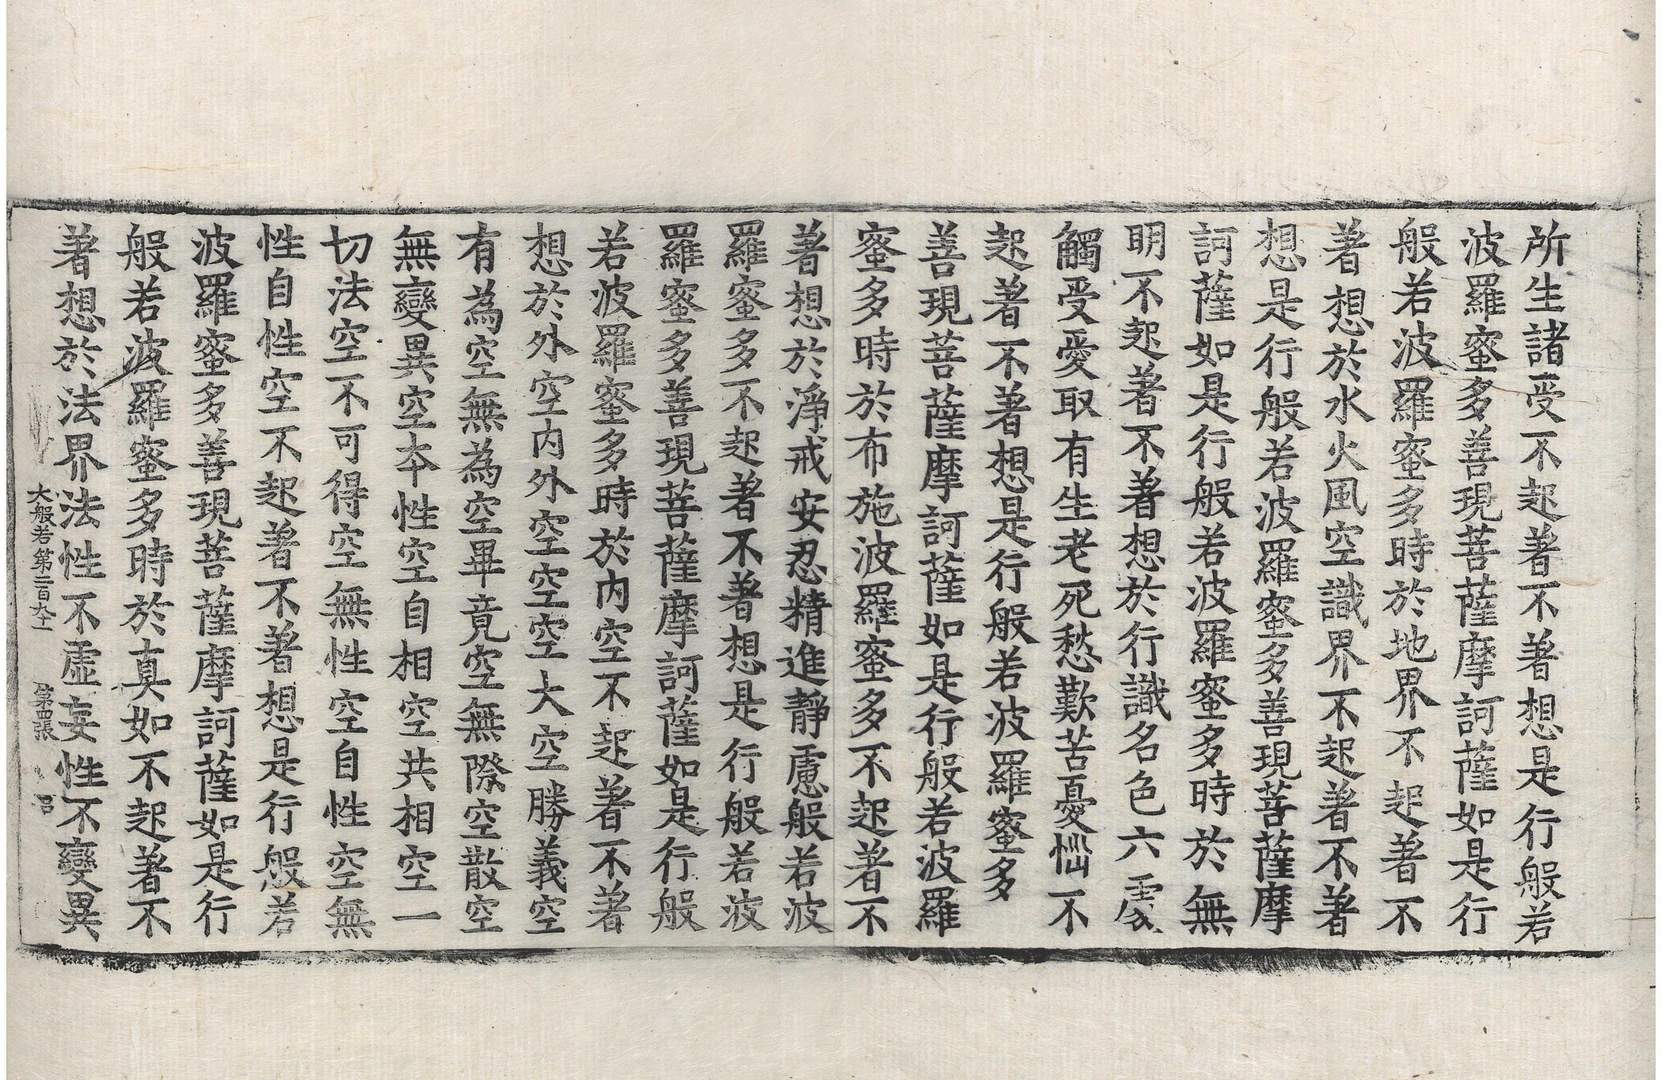 所生諸受不起著不著想是行般若
波羅蜜多善現菩薩摩訶薩如是行
般若波羅蜜多時於地界不起著不
著想於水火風空識界不起著不著
想是行般若波羅蜜多善現菩薩摩
訶薩如是行般若波羅蜜多時於無
明不起著不著想於行識名色六處
觸受愛取有生老死愁歎苦憂惱不
起著不著想是行般若波羅蜜多
善現菩薩摩訶薩如是行般若波羅
蜜多時於布施波羅蜜多不起著不
著想於淨戒安忍精進靜慮般若波
羅蜜多不起著不著想是行般若波
羅蜜多善現菩薩摩訶薩如是行般
若波羅蜜多時於內空不起著不著
想於外空內外空空空大空勝義空
有為空無為空畢竟空無際空散空
無變異空本性空自相空共相空一
切法空不可得空無性空自性空無
性自性空不起著不著想是行般若
波羅蜜多善現菩薩摩訶薩如是行
般若波羅蜜多時於真如不起著不
著想於法界法性不虛妄性不變異
大般若第二百九十一 第四張 呂